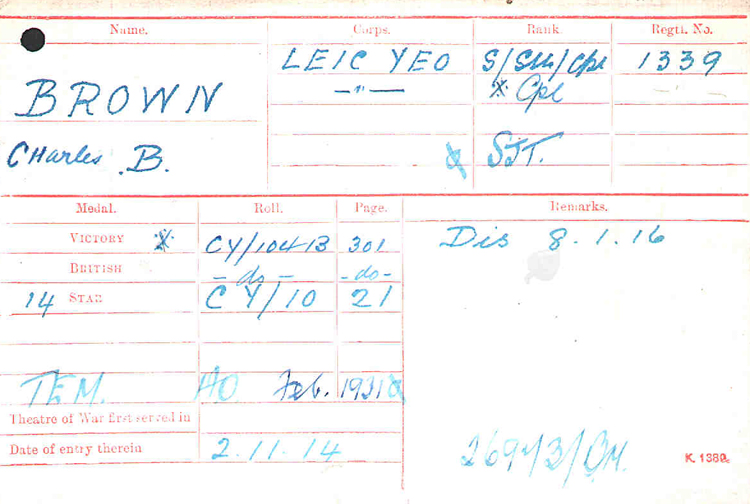 Name. Corps. Rank. Regtl. No.
BROWN LEIC YEO S/SM/Cpl 1339
—"— * Cpl —"—
Charles B. SJT.
Medal. Roll. Page. Remarks.
VICTORY * CY/104B 301 Dis 8.1.16
BRITISH — do — - do -
14 STAR CY/10 21
TEM. AO Feb. 1931
Theatre of War first served in
Date of entry therein 2.11.14
K. 1380.